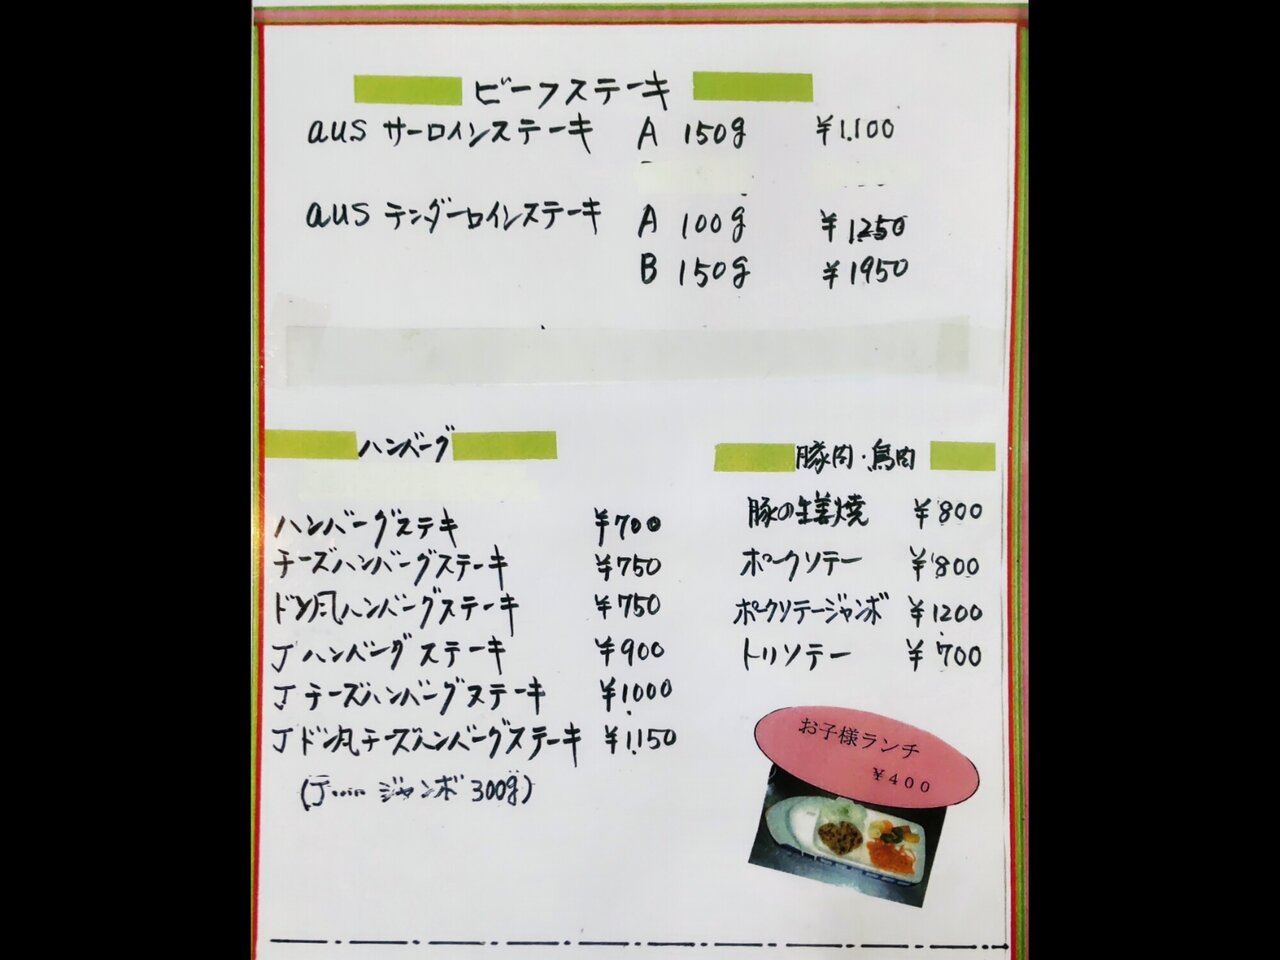 ビーフステーキ
aus サーロインステーキ A 150g ¥1.100
aus テンダーロインステーキ A 100g ¥1250
B 150g ¥1950
ハンバーグ
ハンバーグステキ ¥700
チーズハンバーグステーキ ¥750
ドン風ハンバーグステーキ ¥750
J ハンバーグステーキ ¥900
J チーズハンバーグステーキ ¥1000
J ドン風チーズハンバーグステーキ ¥1.150
(J…… ジャンボ 300g)
豚肉・鳥肉
豚の生姜焼 ¥800
ポークソテー ¥800
ポークソテージャンボ ¥1200
トリソテー ¥700
お子様ランチ
¥400